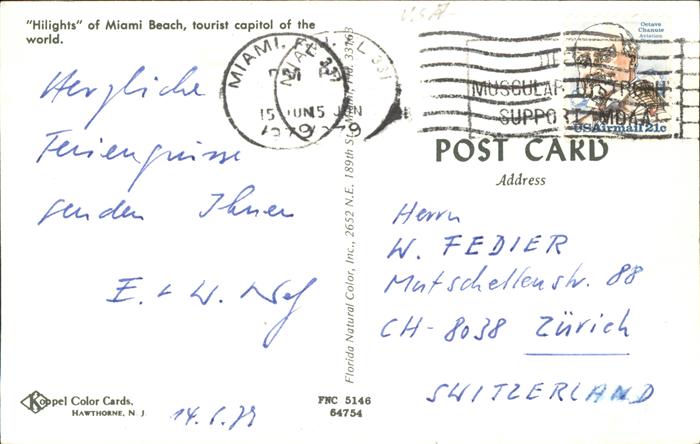 "Hilights" of Miami Beach, tourist capitol of the
world.
USA
Herzliche
Feriengrüsse
senden Ihnen
E. + W. Nef
14.6.79
Koppel Color Cards,
HAWTHORNE, N. J.
FNC 5146
64754
Florida Natural Color, Inc., 2652 N.E. 189th St., Miami, Fla. 33163
MIAMI, FL 331
15 JUN
1979
MUSCULAR DYSTROPH
SUPPORT MDAA
Octave
Chanute
Aviation
USAirmail 21c
POST CARD
Address
Herrn
W. FEDIER
Mutschellenstr. 88
CH-8038 Zürich
SWITZERLAND